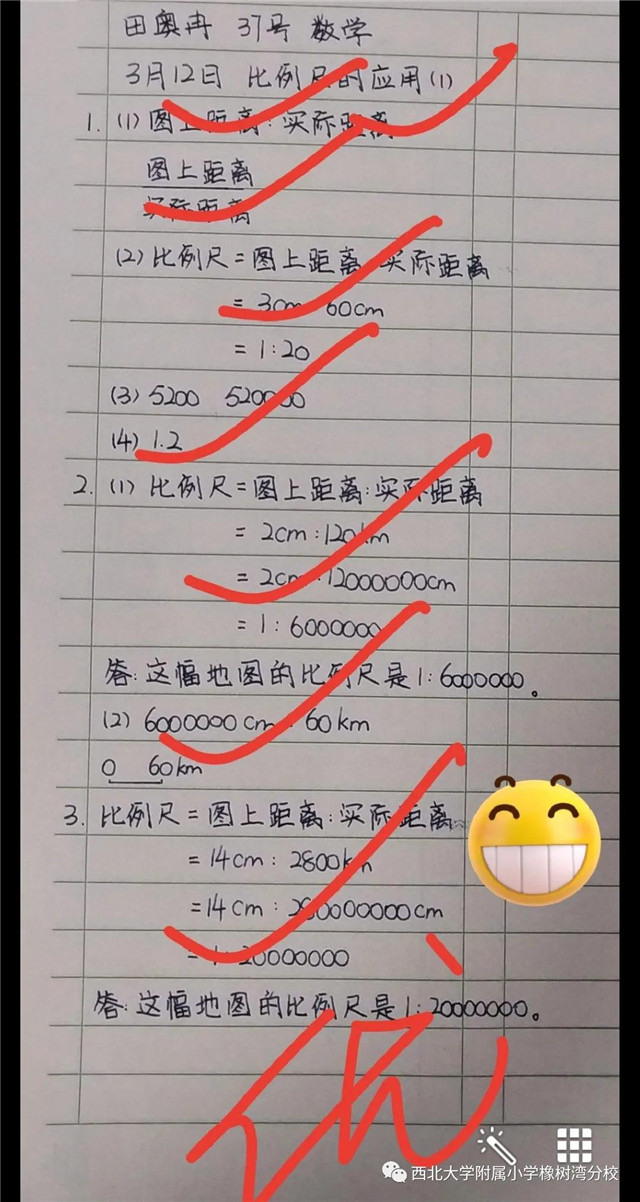 田奥冉 37号 数学
3月12日 比例尺的应用(1)
1. (1) 图上距离:实际距离
图上距离
实际距离
(2) 比例尺=图上距离:实际距离
= 3cm:60cm
= 1:20
(3) 5200 520000
(4) 1.2
2. (1) 比例尺=图上距离:实际距离
= 2cm:120km
= 2cm:12000000cm
= 1:6000000
答:这幅地图的比例尺是1:6000000。
(2) 6000000cm = 60km
0 60km
3. 比例尺=图上距离:实际距离
= 14cm:2800km
=14cm:280000000cm
= 1:20000000
答:这幅地图的比例尺是1:20000000。
优
西北大学附属小学橡树湾分校